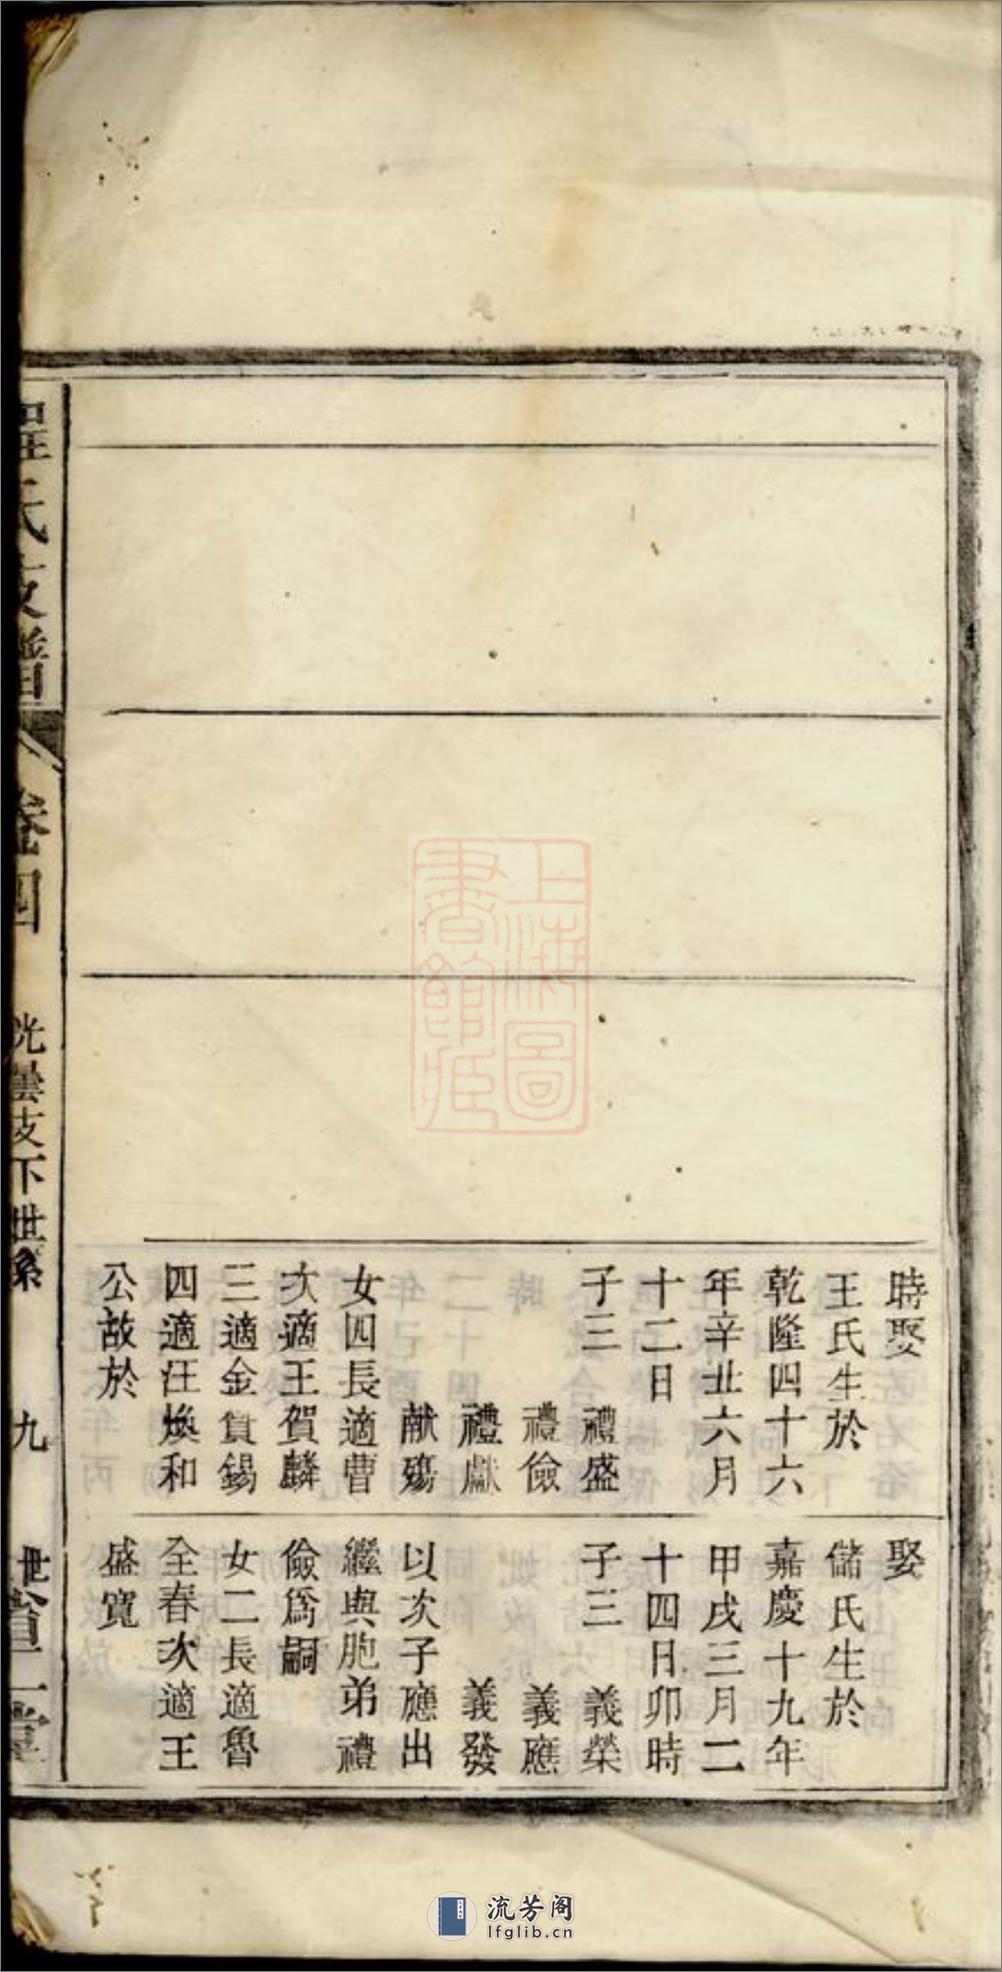 時娶
王氏生於
乾隆四十六
年辛丑六月
十二日
子三 禮盛
禮儉
禮獻
献殤
女四長適曹
次適王賀麟
三適金貢錫
四適汪煥和
公故於
娶
儲氏生於
嘉慶十九年
甲戌三月二
十四日卯時
子三 義榮
義應
義發
以次子應出
繼與胞弟禮
儉爲嗣
女二長適魯
全春次適王
盛寬
程氏支譜
卷四
光曇支下世系
九
世
堂
上海圖
書館藏
流芳阁
lfglib.cn